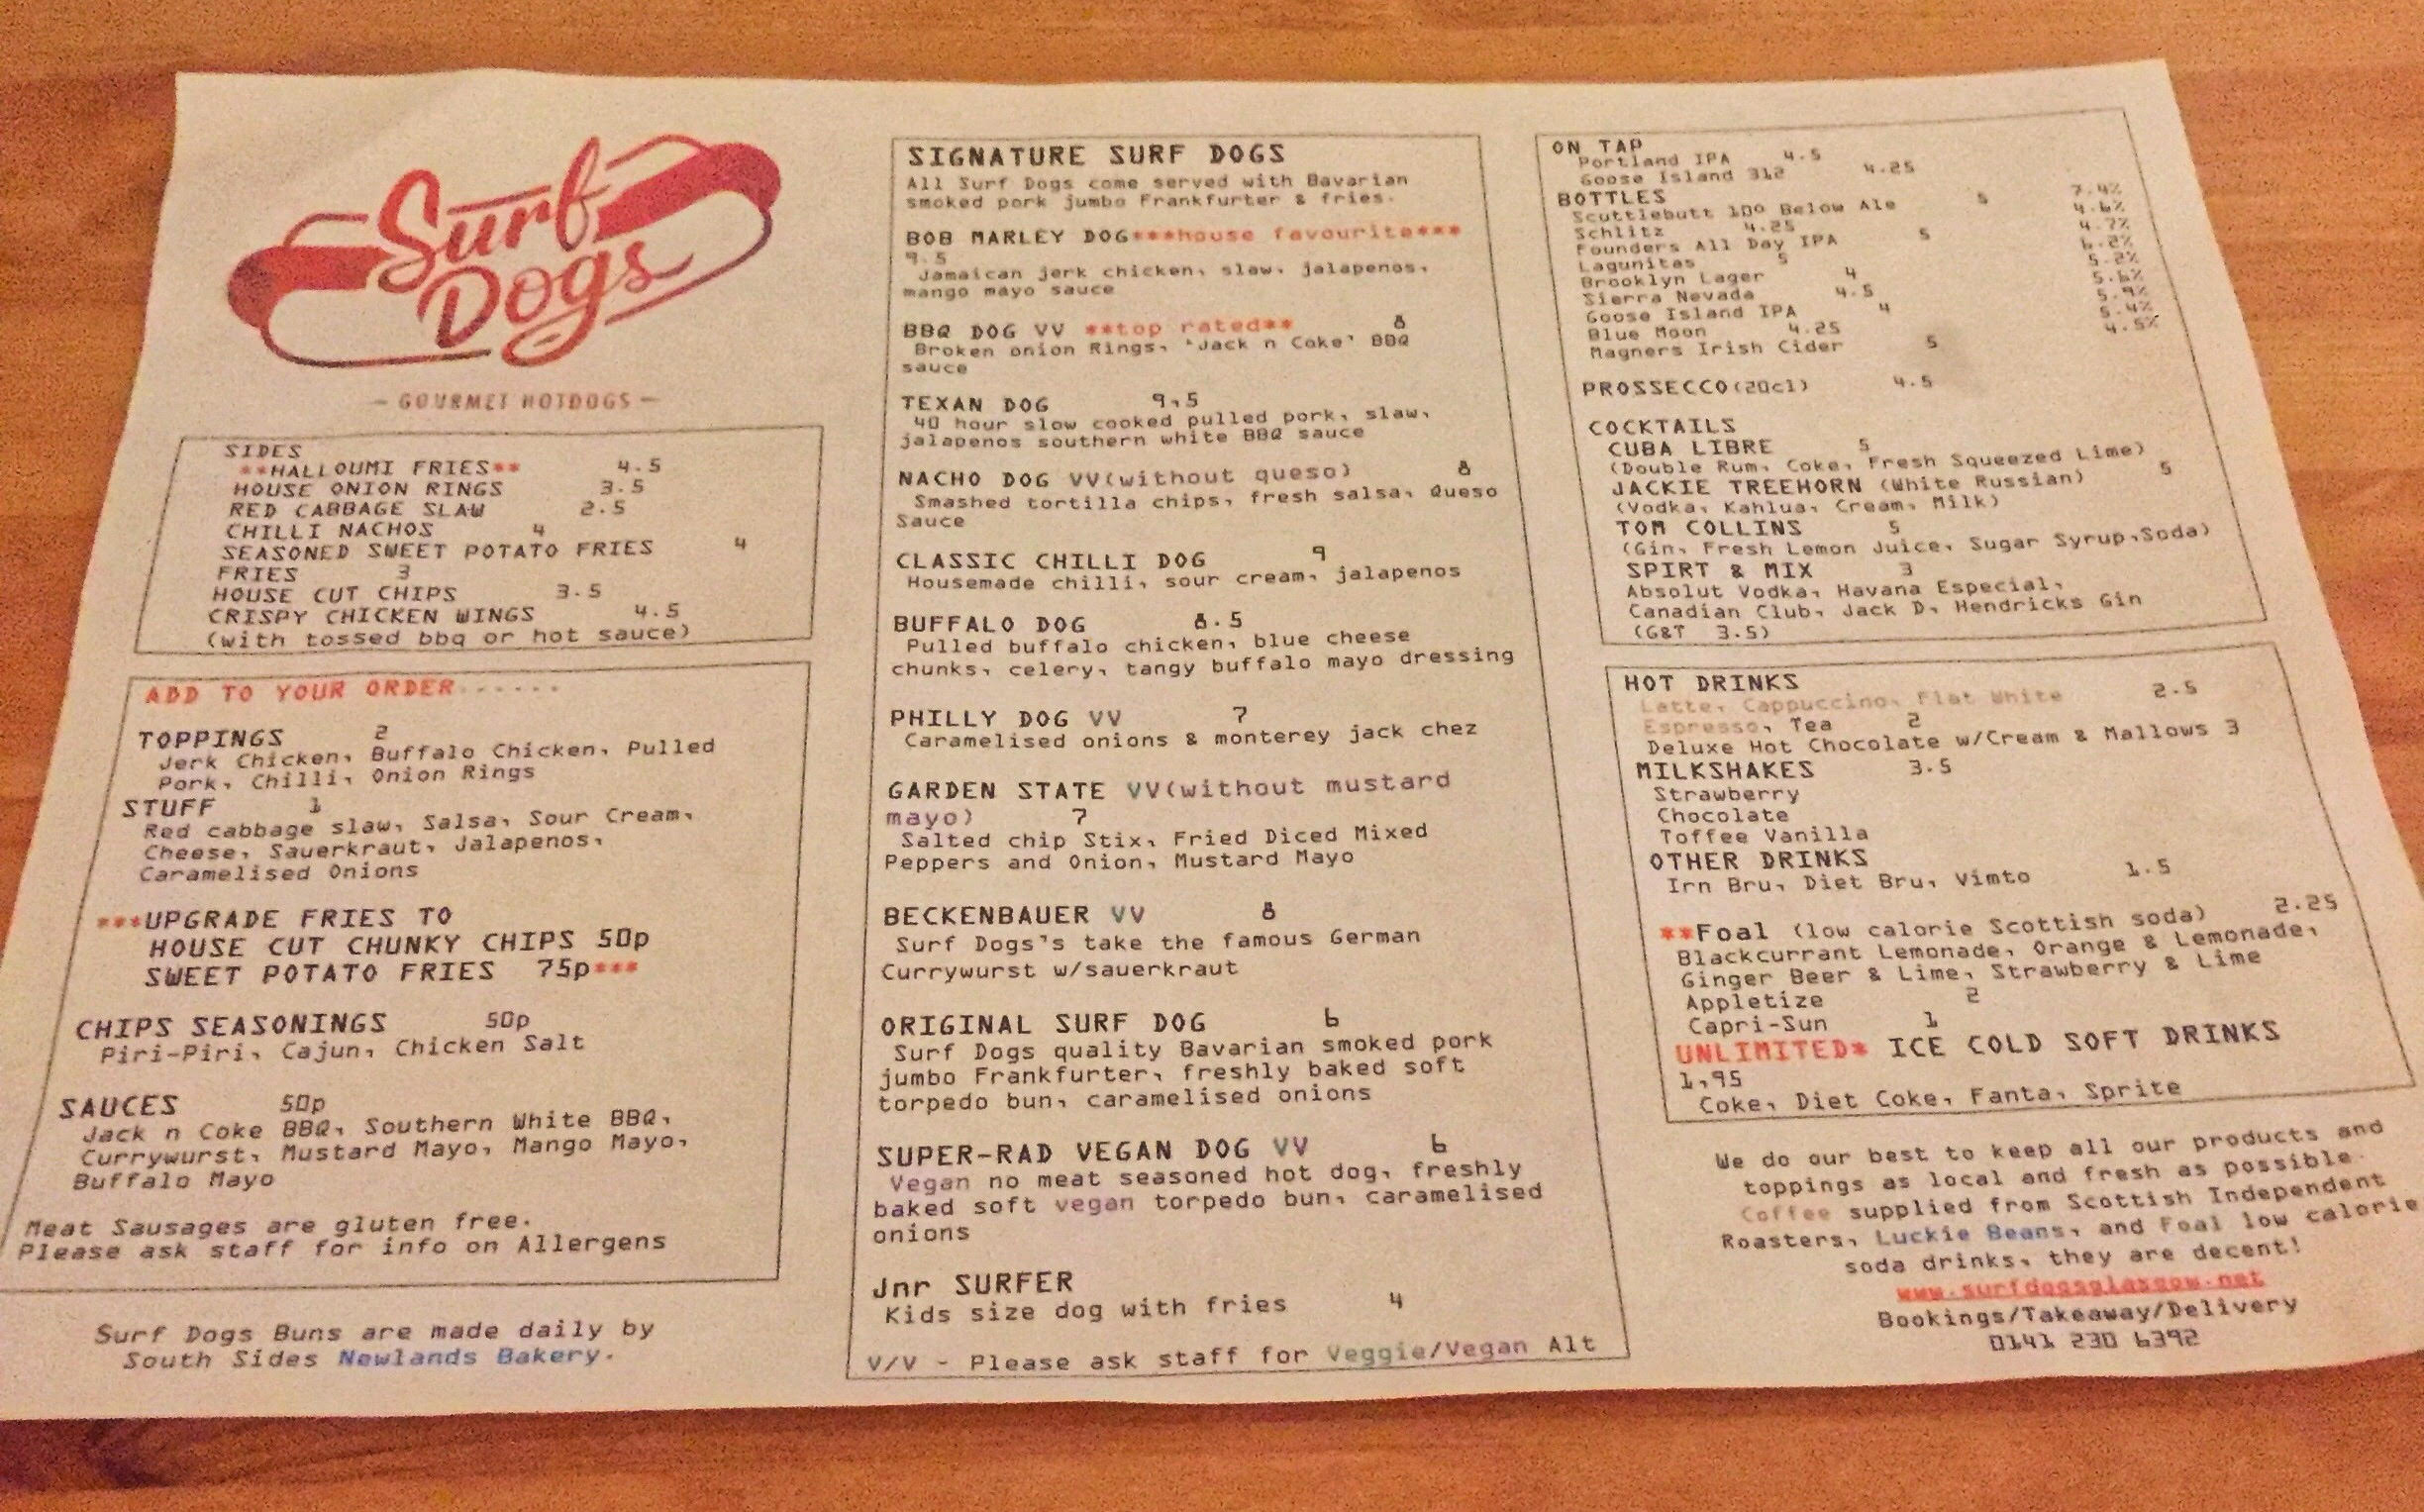 Surf
Dogs
— GOURMET HOTDOGS —
SIDES
**HALLOUMI FRIES** 4.5
HOUSE ONION RINGS 3.5
RED CABBAGE SLAW 2.5
CHILLI NACHOS 4
SEASONED SWEET POTATO FRIES 4
FRIES 3
HOUSE CUT CHIPS 3.5
CRISPY CHICKEN WINGS 4.5
(with tossed bbq or hot sauce)
ADD TO YOUR ORDER......
TOPPINGS 2
Jerk Chicken, Buffalo Chicken, Pulled
Pork, Chilli, Onion Rings
STUFF 1
Red cabbage slaw, Salsa, Sour Cream,
Cheese, Sauerkraut, Jalapenos,
Caramelised Onions
***UPGRADE FRIES TO
HOUSE CUT CHUNKY CHIPS 50p
SWEET POTATO FRIES 75p***
CHIPS SEASONINGS 50p
Piri-Piri, Cajun, Chicken Salt
SAUCES 50p
Jack n Coke BBQ, Southern White BBQ,
Currywurst, Mustard Mayo, Mango Mayo,
Buffalo Mayo
Meat Sausages are gluten free.
Please ask staff for info on Allergens
Surf Dogs Buns are made daily by
South Sides Newlands Bakery.
SIGNATURE SURF DOGS
All Surf Dogs come served with Bavarian
smoked pork jumbo Frankfurter & fries.
BOB MARLEY DOG***house favourite***
9.5
Jamaican jerk chicken, slaw, jalapenos,
mango mayo sauce
BBQ DOG VV **top rated** 8
Broken onion Rings, 'Jack n Coke' BBQ
sauce
TEXAN DOG 9,5
40 hour slow cooked pulled pork, slaw,
jalapenos southern white BBQ sauce
NACHO DOG VV(without queso) 8
Smashed tortilla chips, fresh salsa, Queso
Sauce
CLASSIC CHILLI DOG 9
Housemade chilli, sour cream, jalapenos
BUFFALO DOG 8.5
Pulled buffalo chicken, blue cheese
chunks, celery, tangy buffalo mayo dressing
PHILLY DOG VV 7
Caramelised onions & monterey jack chez
GARDEN STATE VV(without mustard
mayo) 7
Salted chip Stix, Fried Diced Mixed
Peppers and Onion, Mustard Mayo
BECKENBAUER VV 8
Surf Dogs's take the famous German
Currywurst w/sauerkraut
ORIGINAL SURF DOG 6
Surf Dogs quality Bavarian smoked pork
jumbo Frankfurter, freshly baked soft
torpedo bun, caramelised onions
SUPER-RAD VEGAN DOG VV 6
Vegan no meat seasoned hot dog, freshly
baked soft vegan torpedo bun, caramelised
onions
Jnr SURFER
Kids size dog with fries 4
V/V - Please ask staff for Veggie/Vegan Alt
ON TAP
Portland IPA 4.5
Goose Island 312 4.25
BOTTLES
Scuttlebutt 10º Below Ale 5 7.4%
Schlitz 4.25 4.6%
Founders All Day IPA 5 4.7%
Lagunitas 5 6.2%
Brooklyn Lager 4 5.2%
Sierra Nevada 4.5 5.6%
Goose Island IPA 4 5.9%
Blue Moon 4.25 5.4%
Magners Irish Cider 5 4.5%
PROSSECCO(20cl) 4.5
COCKTAILS
CUBA LIBRE 5
(Double Rum, Coke, Fresh Squeezed Lime)
JACKIE TREEHORN (White Russian) 5
(Vodka, Kahlua, Cream, Milk)
TOM COLLINS 5
(Gin, Fresh Lemon Juice, Sugar Syrup,Soda)
SPIRT & MIX 3
Absolut Vodka, Havana Especial,
Canadian Club, Jack D, Hendricks Gin
(G&T 3.5)
HOT DRINKS
Latte, Cappuccino, Flat White 2.5
Espresso, Tea 2
Deluxe Hot Chocolate w/Cream & Mallows 3
MILKSHAKES 3.5
Strawberry
Chocolate
Toffee Vanilla
OTHER DRINKS
Irn Bru, Diet Bru, Vimto 1.5
**Foal (low calorie Scottish soda) 2.25
Blackcurrant Lemonade, Orange & Lemonade,
Ginger Beer & Lime, Strawberry & Lime
Appletize 2
Capri-Sun 1
UNLIMITED* ICE COLD SOFT DRINKS
1,95
Coke, Diet Coke, Fanta, Sprite
We do our best to keep all our products and
toppings as local and fresh as possible.
Coffee supplied from Scottish Independent
Roasters, Luckie Beans, and Foal low calorie
soda drinks, they are decent!
www.surfdogsglasgow.net
Bookings/Takeaway/Delivery
0141 230 6392